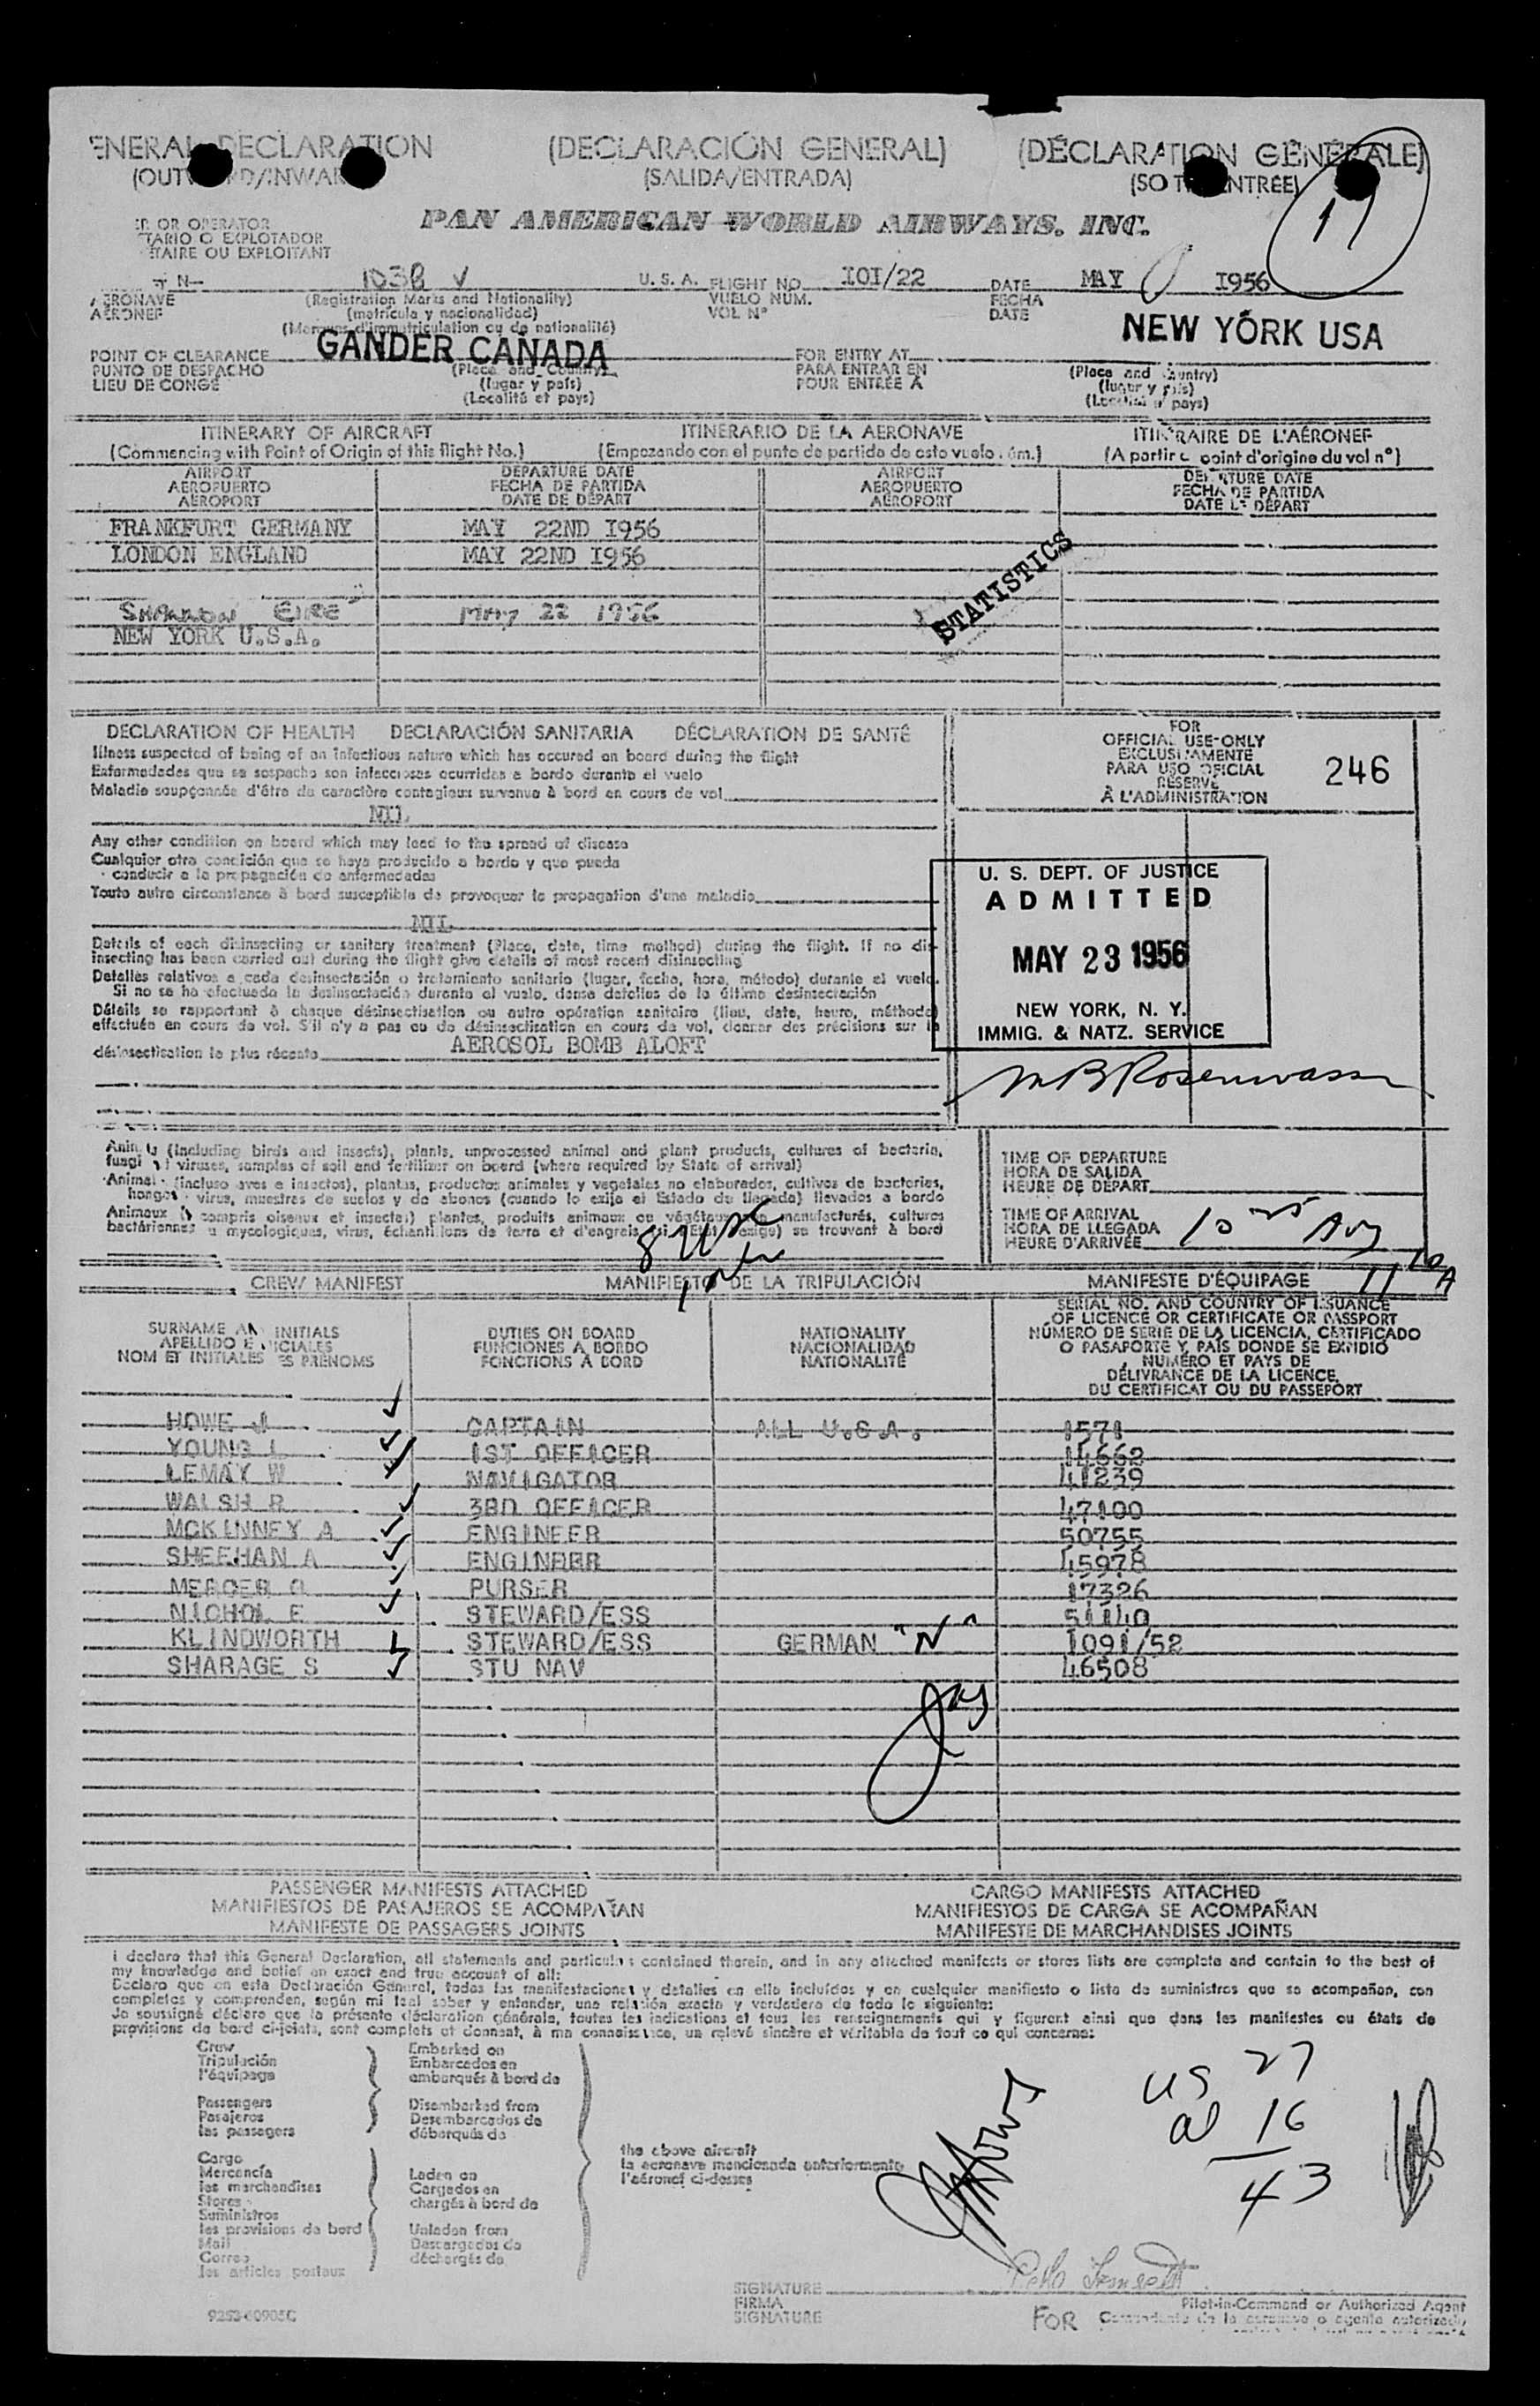 ENERAL DECLARATION (DECLARACIÓN GENERAL) (DÉCLARATION GÉNÉRALE)
(SALIDA/ENTRADA)
11
OR OPERATOR
TARIO O EXPLOTADOR
TAIRE OU EXPLOITANT
PAN AMERICAN WORLD AIRWAYS, INC.
N— 1038 V U.S.A. FLIGHT NO. 101/22 DATE MAY 1956
AERONAVE (Registration Marks and Nationality) VUELO NUM. FECHA
AÉRONEF (matrícula y nacionalidad) VOL Nº DATE
(Marques d'immatriculation ou de nationalité)
GANDER CANADA NEW YORK USA
POINT OF CLEARANCE (Place and Country) FOR ENTRY AT (Place and Country)
PUNTO DE DESPACHO (lugar y país) PARA ENTRAR EN (lugar y país)
LIEU DE CONGÉ (Localité et pays) POUR ENTRÉE À (Localité et pays)
ITINERARY OF AIRCRAFT ITINERARIO DE LA AERONAVE ITINÉRAIRE DE L'AÉRONEF
(Commencing with Point of Origin of this flight No.) (Empezando con el punto de partida de este vuelo núm.) (A partir point d'origine du vol nº)
AIRPORT DEPARTURE DATE AIRPORT DEPARTURE DATE
AEROPUERTO FECHA DE PARTIDA AEROPUERTO FECHA DE PARTIDA
AÉROPORT DATE DE DÉPART AÉROPORT DATE DE DÉPART
FRANKFURT GERMANY MAY 22ND 1956
LONDON ENGLAND MAY 22ND 1956
SHANNON EIRE MAY 22 1956
NEW YORK U.S.A.
STATISTICS
DECLARATION OF HEALTH DECLARACIÓN SANITARIA DÉCLARATION DE SANTÉ
Illness suspected of being of an infectious nature which has occured on board during the flight
Enfermedades que se sospecha son infecciosas ocurridas a bordo durante el vuelo
Maladie soupçonnée d'être de caractère contagieux survenue à bord en cours de vol
NIL
Any other condition on board which may lead to the spread of disease
Cualquier otra condición que se haya producido a bordo y que pueda
conducir a la propagación de enfermedades
Toute autre circonstance à bord susceptible de provoquer la propagation d'une maladie
NIL
Details of each disinsecting or sanitary treatment (Place, date, time method) during the flight. If no dis-
insecting has been carried out during the flight give details of most recent disinsecting
Detalles relativos a cada desinsectación o tratamiento sanitario (lugar, fecha, hora, método) durante el vuelo.
Si no se ha efectuado la desinsectación durante el vuelo, dense detalles de la última desinsectación
Détails se rapportant à chaque désinsectisation ou autre opération sanitaire (lieu, date, heure, méthode)
effectuée en cours de vol. S'il n'y a pas eu de désinsectisation en cours de vol, donner des précisions sur la
désinsectisation la plus récente AEROSOL BOMB ALOFT
FOR
OFFICIAL USE ONLY
EXCLUSIVAMENTE
PARA USO OFICIAL
RÉSERVÉ
À L'ADMINISTRATION
246
U. S. DEPT. OF JUSTICE
ADMITTED
MAY 23 1956
NEW YORK, N. Y.
IMMIG. & NATZ. SERVICE
M B Rosenwasser
Animals (including birds and insects), plants, unprocessed animal and plant products, cultures of bacteria,
fungi viruses, samples of soil and fertilizer on board (where required by State of arrival)
Animal (incluso aves e insectos), plantas, productos animales y vegetales no elaborados, cultivos de bacterias,
hongos virus, muestras de suelos y de abonos (cuando lo exija el Estado de llegada) llevados a bordo
Animaux (y compris oiseaux et insectes) plantes, produits animaux ou végétaux non manufacturés, cultures
bactériennes ou mycologiques, virus, échantillons de terre et d'engrais (si l'Etat l'exige) se trouvant à bord
8 USC
TIME OF DEPARTURE
HORA DE SALIDA
HEURE DE DÉPART
TIME OF ARRIVAL
HORA DE LLEGADA
HEURE D'ARRIVÉE
10 25
11 10 A
CREW MANIFEST MANIFIESTO DE LA TRIPULACIÓN MANIFESTE D'ÉQUIPAGE
SURNAME AND INITIALS DUTIES ON BOARD NATIONALITY SERIAL NO. AND COUNTRY OF ISSUANCE
APELLIDO E INICIALES FUNCIONES A BORDO NACIONALIDAD OF LICENCE OR CERTIFICATE OR PASSPORT
NOM ET INITIALES DES PRÉNOMS FONCTIONS À BORD NATIONALITÉ NÚMERO DE SERIE DE LA LICENCIA, CERTIFICADO
O PASAPORTE Y PAÍS DONDE SE EXPIDIÓ
NUMÉRO ET PAYS DE
DÉLIVRANCE DE LA LICENCE,
DU CERTIFICAT OU DU PASSEPORT
HOWE J CAPTAIN ALL U.S.A. 1571
YOUNG L 1ST OFFICER 14662
LEMAY W NAVIGATOR 41239
WALSH R 3RD OFFICER 47100
MCKINNEY A ENGINEER 50755
SHEEHAN A ENGINEER 45978
MERCER PURSER 17326
NICHOL E STEWARD/ESS 51140
KLINDWORTH STEWARD/ESS GERMAN "N" 1091/52
SHARAGE S STU NAV 46508
PASSENGER MANIFESTS ATTACHED CARGO MANIFESTS ATTACHED
MANIFIESTOS DE PASAJEROS SE ACOMPAÑAN MANIFIESTOS DE CARGA SE ACOMPAÑAN
MANIFESTE DE PASSAGERS JOINTS MANIFESTE DE MARCHANDISES JOINTS
I declare that this General Declaration, all statements and particulars contained therein, and in any attached manifests or stores lists are complete and contain to the best of
my knowledge and belief an exact and true account of all:
Declaro que en esta Declaración General, todas las manifestaciones y detalles en ella incluidos y en cualquier manifiesto o lista de suministros que se acompañan, son
completos y comprenden, según mi leal saber y entender, una relación exacta y verdadera de todo lo siguiente:
Je soussigné déclare que la présente déclaration générale, toutes les indications et tous les renseignements qui y figurent ainsi que dans les manifestes ou états de
provisions de bord ci-joints, sont complets et donnent, à ma connaissance, un relevé sincère et véritable de tout ce qui concerne:
Crew Embarked on
Tripulación Embarcados en
l'équipage embarqués à bord de
Passengers Disembarked from
Pasajeros Desembarcados de
les passagers débarqués de
Cargo the above aircraft
Mercancía Laden on la aeronave mencionada anteriormente
les marchandises Cargados en l'aéronef ci-dessus
Stores chargés à bord de
Suministros
les provisions de bord Unladen from
Mail Descargados de
Correo déchargés de
les articles postaux
US 27
al 16
43
SIGNATURE
FIRMA
SIGNATURE
FOR
Pilot-in-Command or Authorized Agent
Comandante de la aeronave o agente autorizado